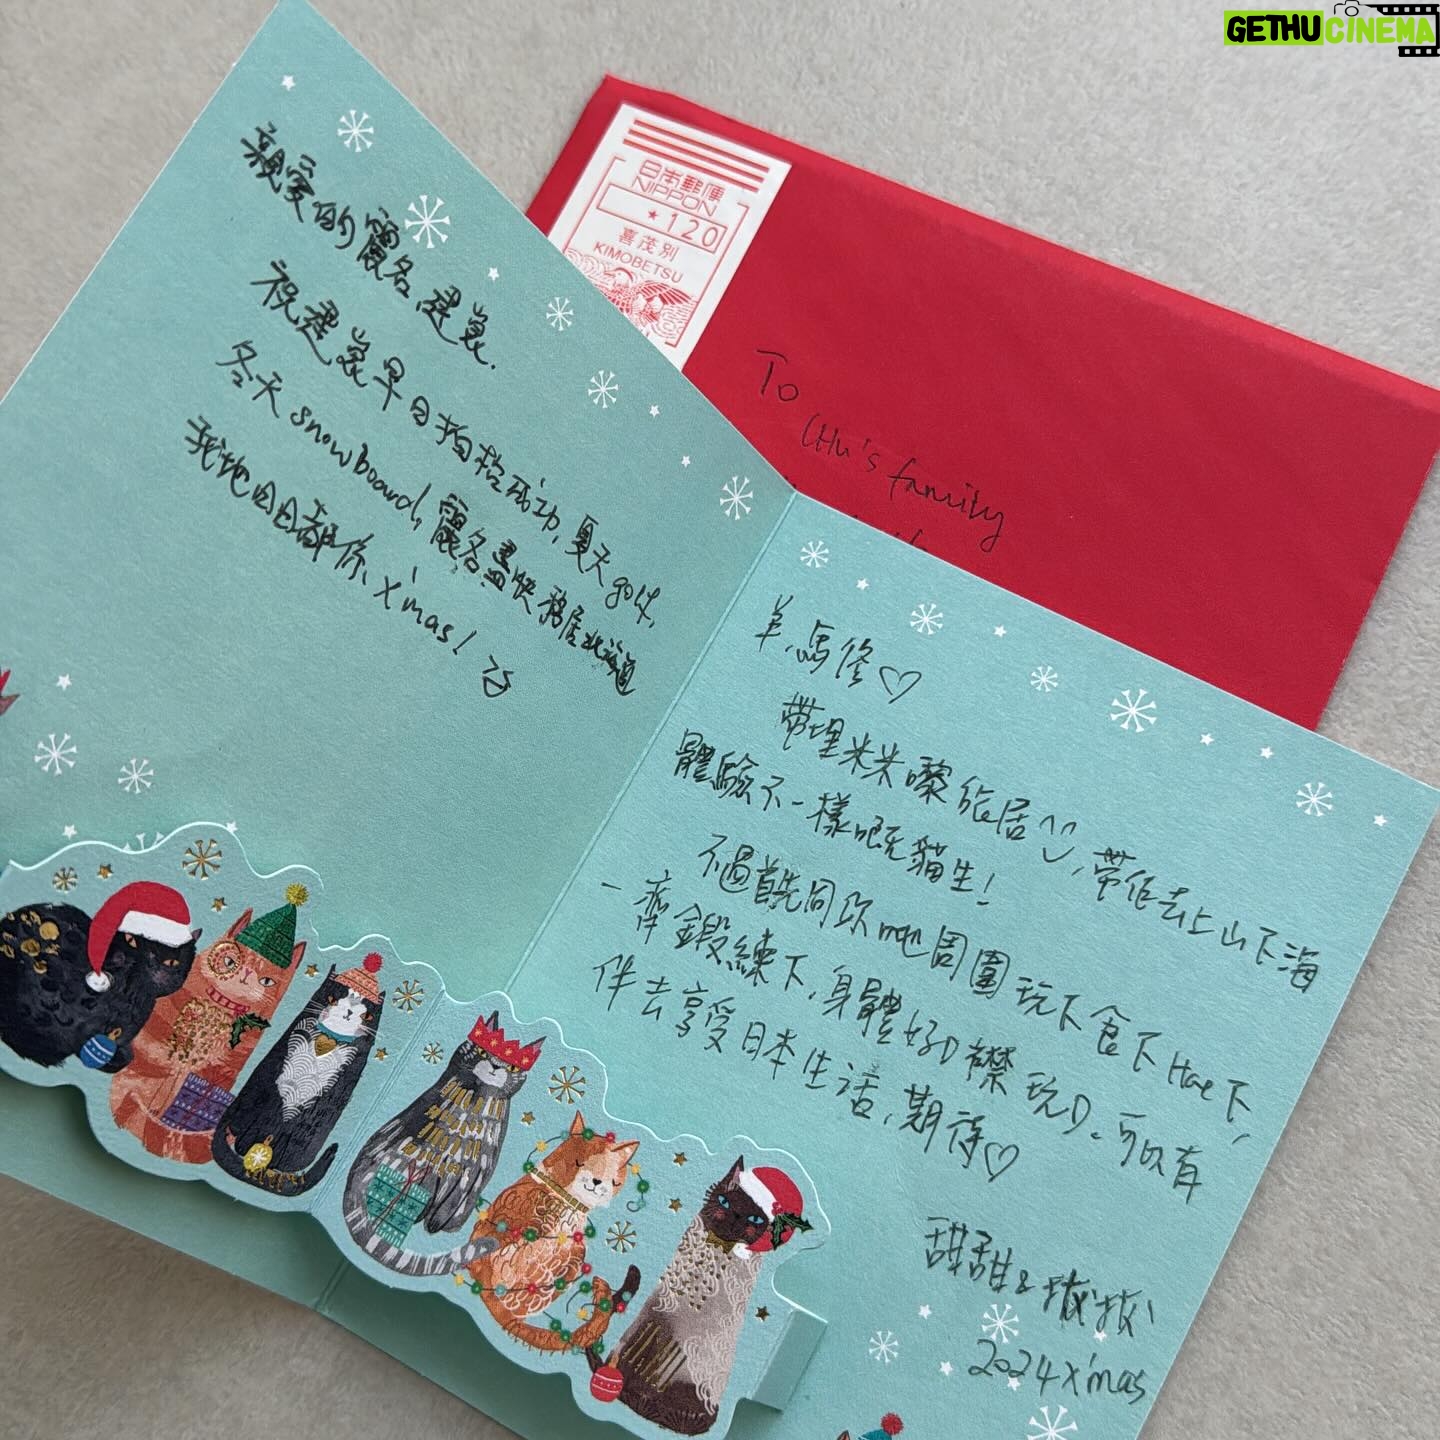 GETHUCINEMA
日本郵便
NIPPON
★120
喜茂別
KIMOBETSU
To CHu's family
親愛的靈名,建嵐.
祝建嵐早日拍拉成功,夏天golf,
冬天snowboard,靈名盡快移居北海道
我哋日日都係X'mas!
羊,馬修♡
帶埋米米嚟旅居,帶佢去上山下海
體驗不一樣嘅貓生!
不過首先同你哋周圍玩下食下Hae下,
一齊鍛練下,身體好D襟玩D。可以有
伴去享受日本生活,期待♡
甜甜&拔拔
2024 X'mas